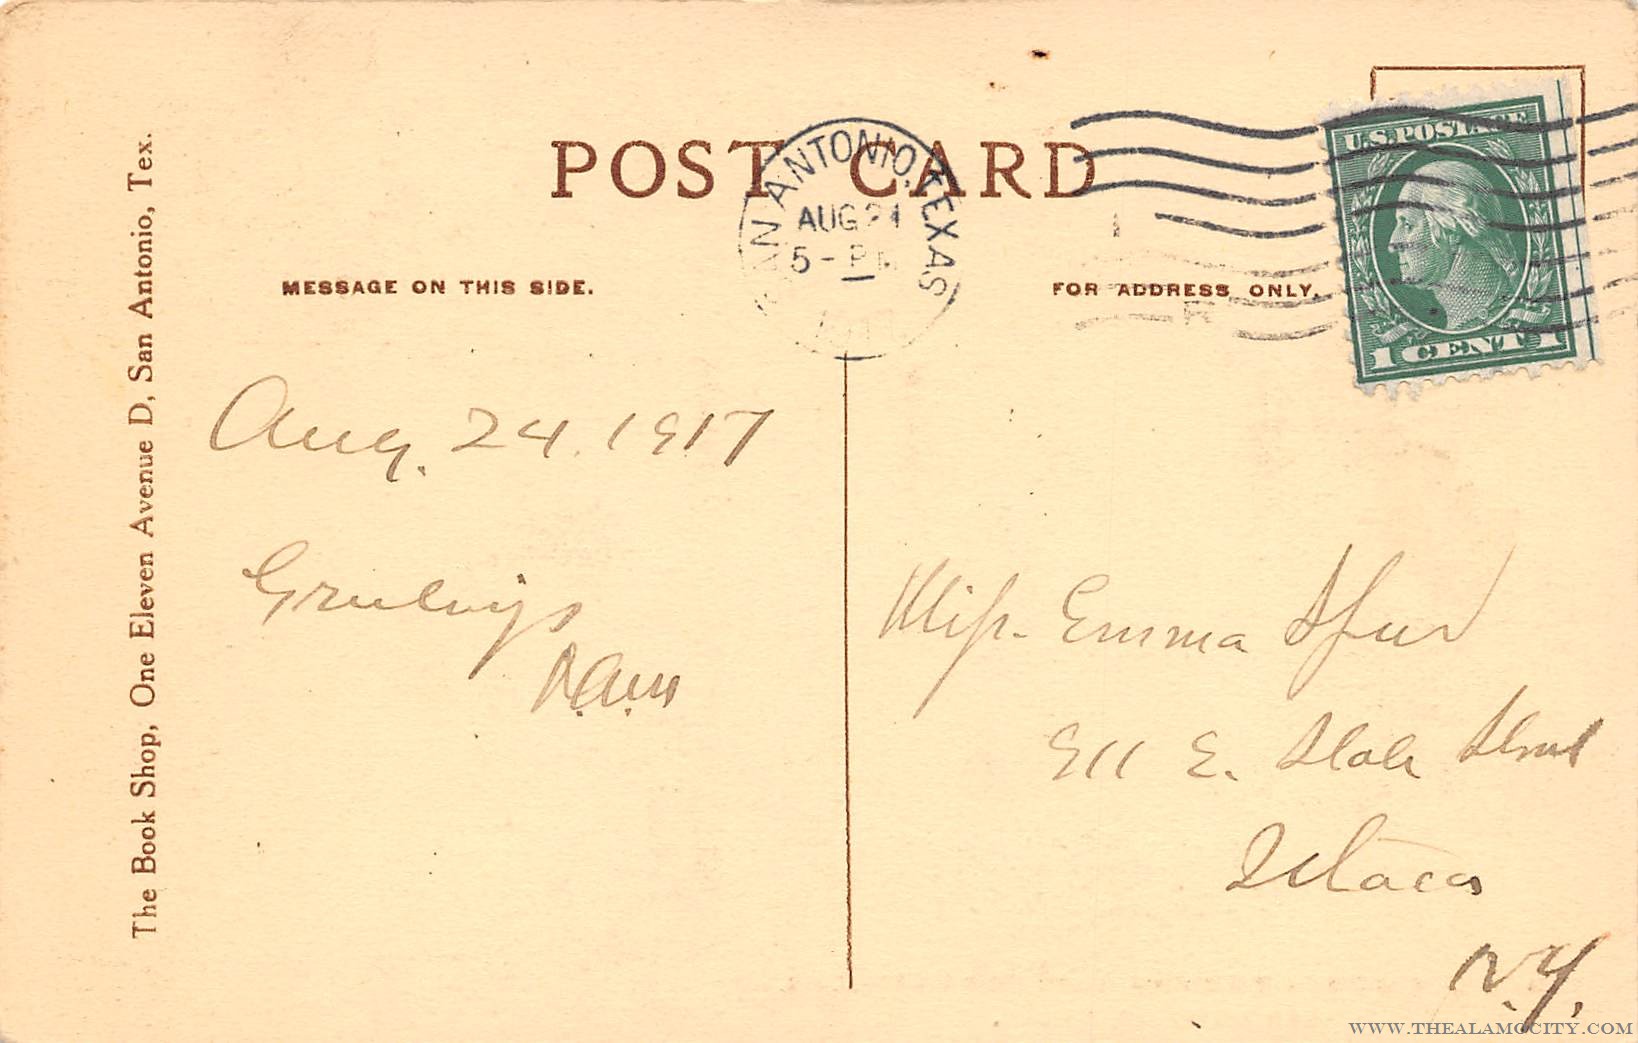 POST CARD
SAN ANTONIO, TEXAS
AUG 24
5 - PM
1917
U.S. POSTAGE
1 CENT 1
MESSAGE ON THIS SIDE.
FOR ADDRESS ONLY.
The Book Shop, One Eleven Avenue D, San Antonio, Tex.
Aug. 24. 1917
Greetings
Miss. Emma
911 E. State Street
Ithaca
N.Y.
WWW.THEALAMOCITY.COM